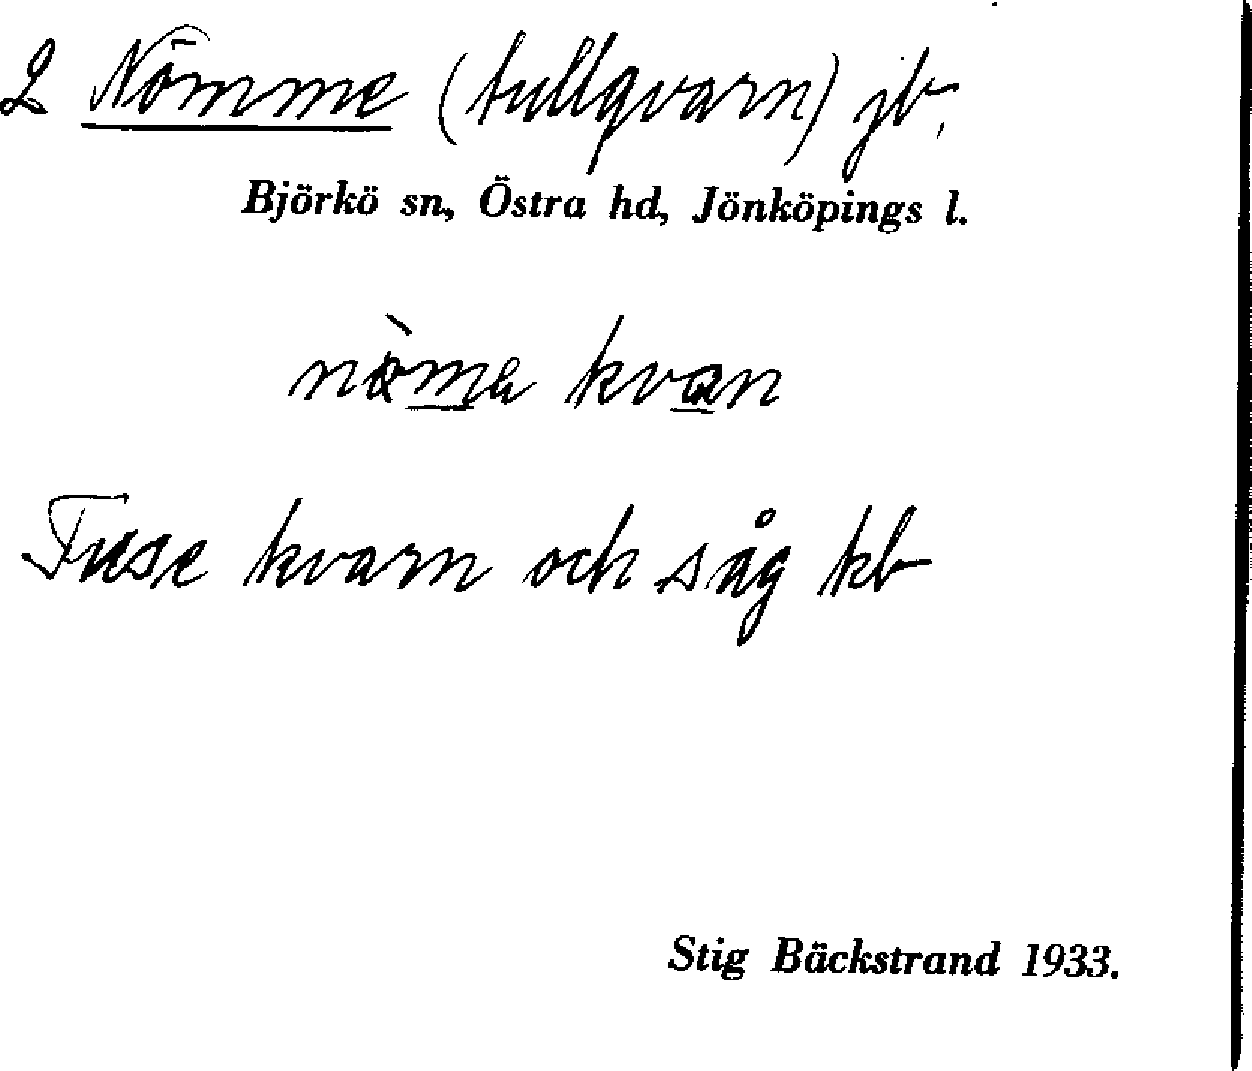 2 Nömme (tullqvarn) jb.
Björkö sn, Östra hd, Jönköpings l.
kvan
Fuse kvarn och såg kb
Stig Bäckstrand 1933.